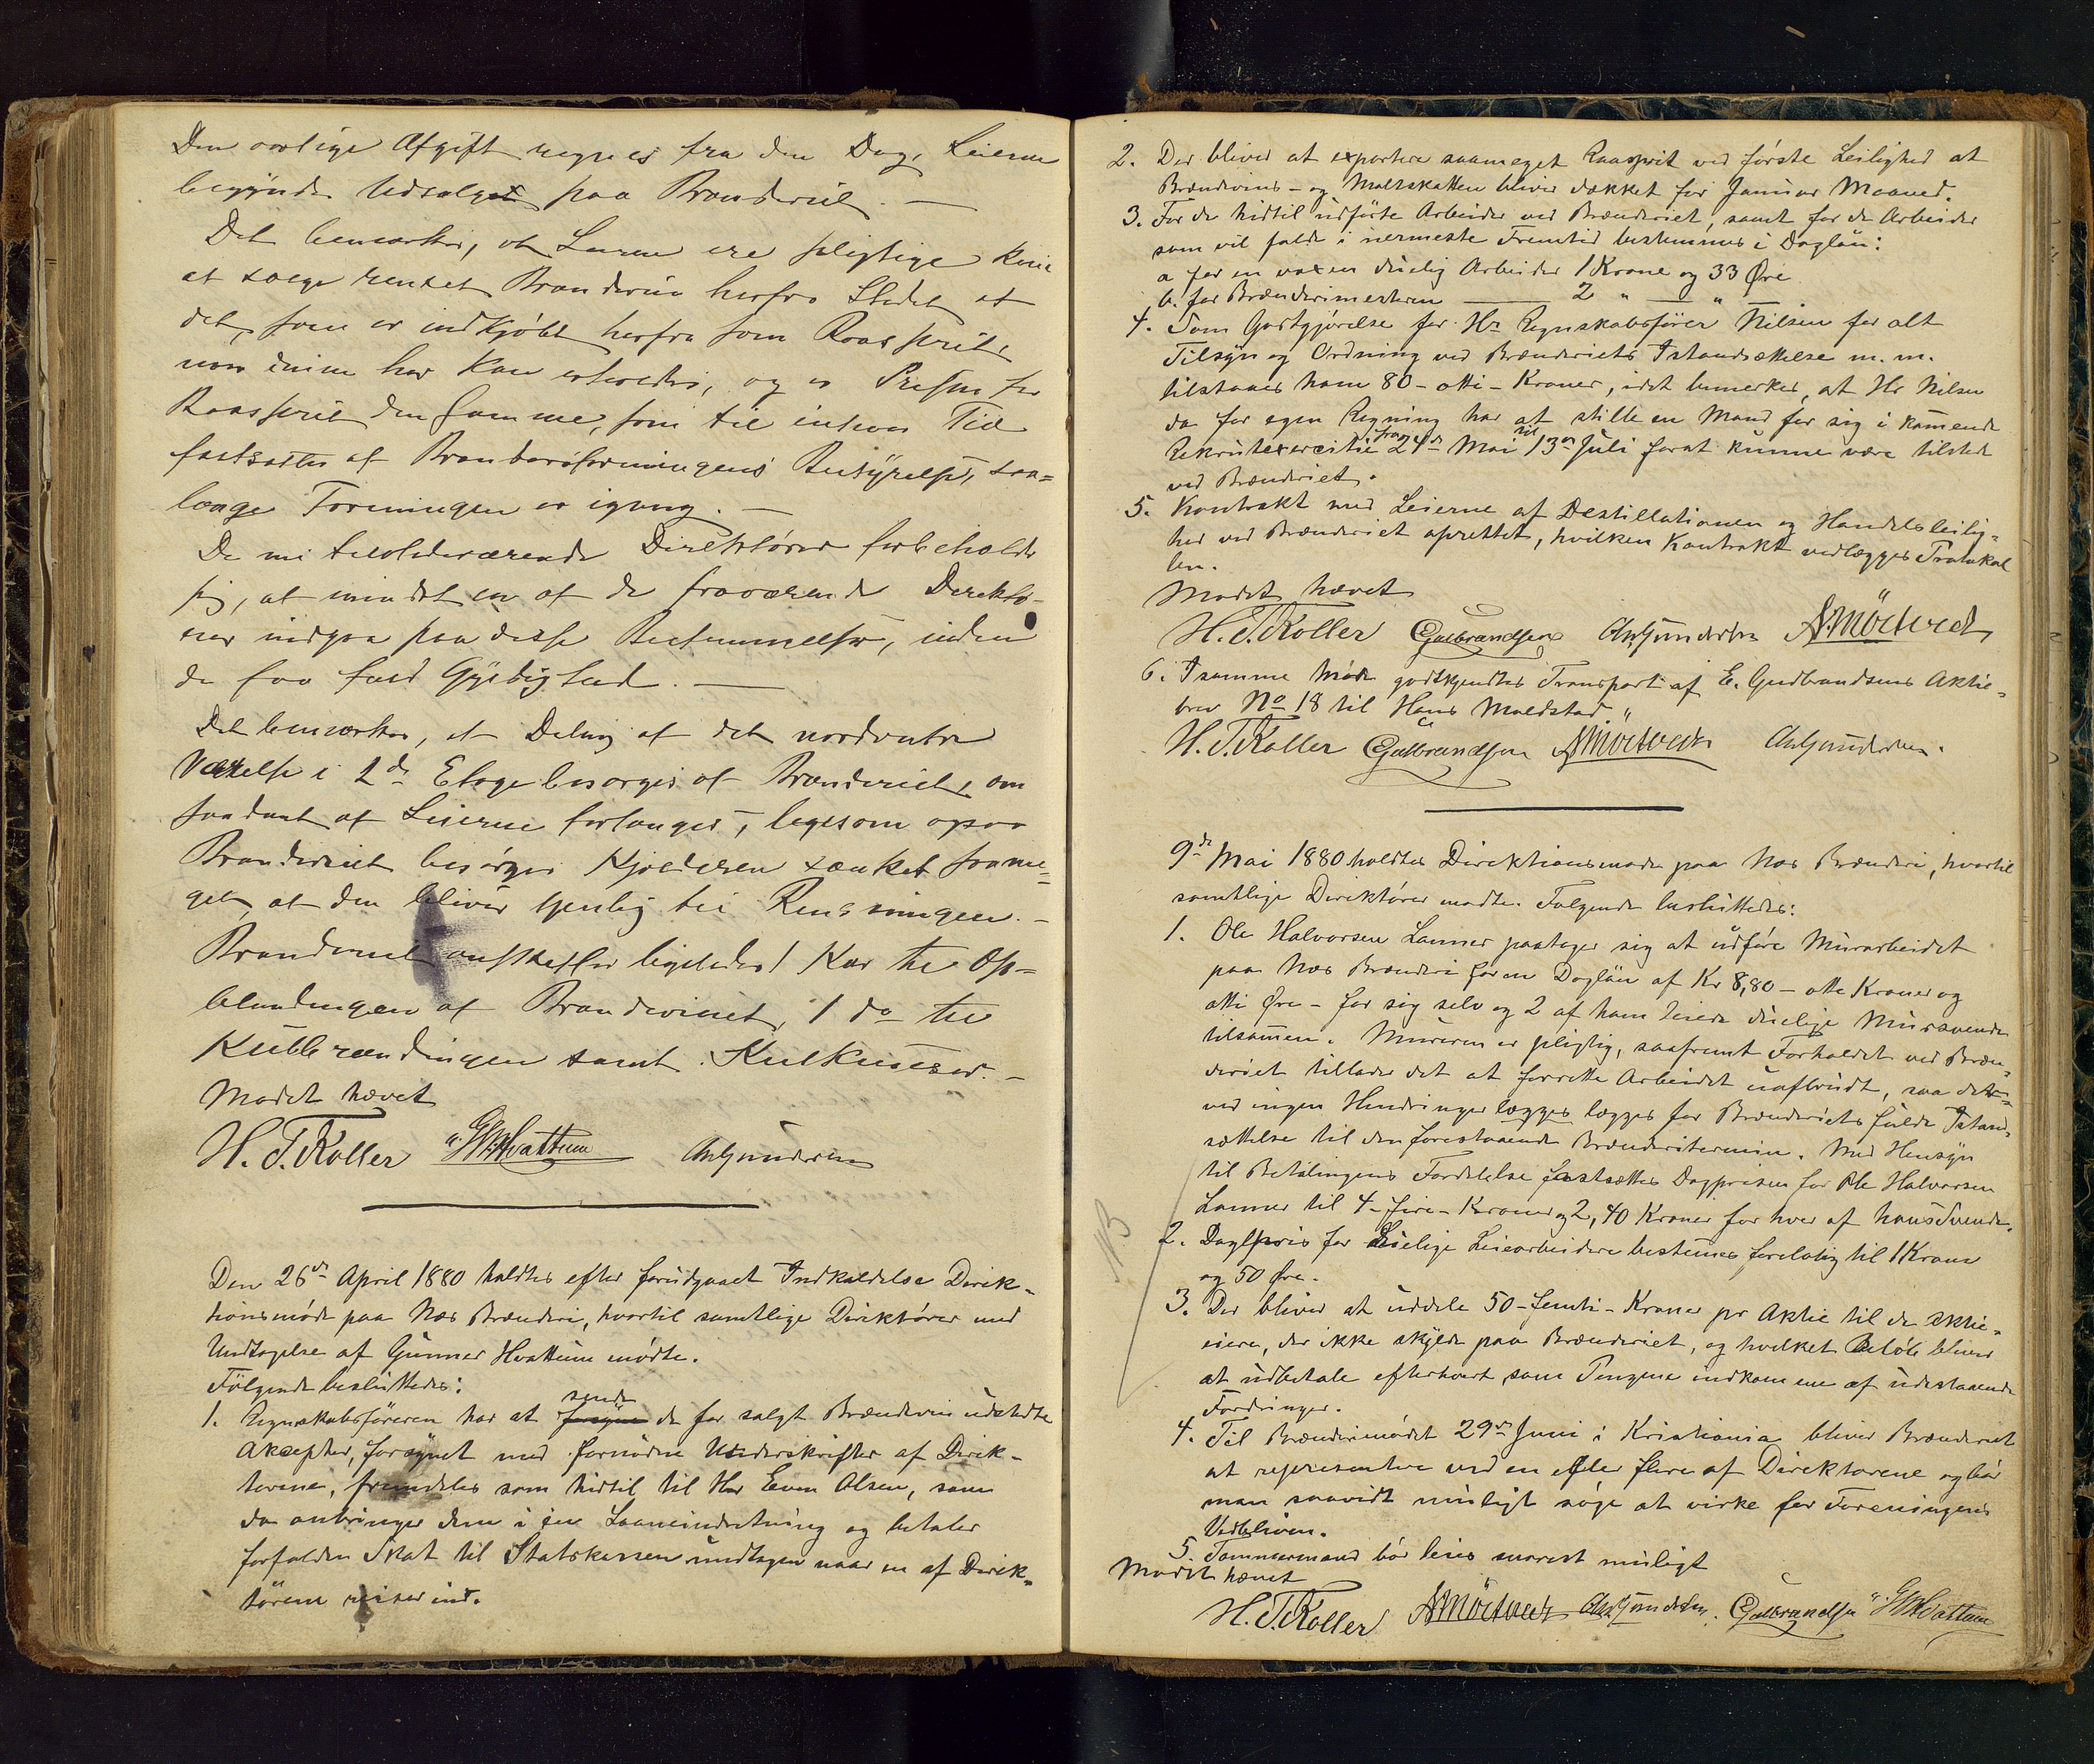 Den aarlige Afgift regnes fra den Dag, Leierne
begynde Udsalget paa Brænderiet. —
Det bemærkes, at Leierne ere pligtige kun
at sælge renset Brændeviin herfra Stedet af
det, som er indkjøbt herfra som Raasprit,
naar denne her kan erholdes, og er Prisen for
Raasprit den samme, som til enhver Tid
fastsættes af Brænderiforeningens Bestyrelse, saa=
længe Foreningen er igang. —
De nu tilstedeværende Direktører forbeholde
sig, at mindst en af de fraværende Direktø-
rer indgaa paa disse Bestemmelser, inden
de faa fuld Gyldighed. —
Det bemærkes, at Deling af det nordvestre
Værelse i 2de Etage besørges af Brænderiet, om
saadant af Leierne forlanges, ligesom ogsaa
Brænderiet besørger Kjælderen sænket saame=
get, at den bliver tjenlig til Rensningen. —
Brænderiet anskaffer ligeledes 1 Kar til Op=
blandingen af Brændevinet, 1 do til
Kulbrændingen samt Kulknuser. —
Mødet hævet
H. T. Koller G. Hvattum A. Gundersen
Den 26de April 1880 holdtes efter forudgaaet Indkaldelse Direk-
tionsmøde paa Næs Brænderi, hvortil samtlige Direktører med
Undtagelse af Gunner Hvattum mødte.
Følgende besluttedes:
sende
1. Regnskabsføreren har at forsyne de for solgt Brændeviin udstedte
Aksepter, forsynet med fornødne Underskrifter af Direk-
tørerne, fremdeles som hidtil til Hr Even Olsen, som
da anbringer dem i en Laaneindretning og betaler
forfalden Skat til Statskassen undtagen naar en af Direk-
tørerne reiser ind.
2. Der bliver at exportere saameget Raasprit ved første Leilighed at
Brændevins- og Maltskatten bliver dækket for Januar Maaned.
3. For de hidtil udførte Arbeider ved Brænderiet, samt for de Arbeider
som vil falde i nærmeste Fremtid bestemmes i Dagløn:
a for en voxen duelig Arbeider 1 Krone og 33 Øre
b. for Brænderimesteren — 2 " — "
4. Som Godtgjørelse for Hr Regnskabsfører Nilsen for alt
Tilsyn og Ordning ved Brænderiets Istandsættelse m. m.
tilstaaes ham 80 - otti - Kroner, idet bemerkes, at Hr Nilsen
da for egen Regning har at stille en Mand for sig i kommende
Rekrutexercitie fra 24de Mai til 13de Juli forat kunne være tilstede
ved Brænderiet.
5. Kontrakt med Leierne af Destillationen og Handelsleilig=
hed ved Brænderiet oprettet, hvilken Kontrakt vedlægges Protokol
len.
Mødet hævet
H. T. Koller E Gulbrandsen A Gundersen A. Mörtved
6. I samme Møde godkjendtes Transport af E. Gudbrandsens Aktie-
brev No 18 til Hans Moldstad."
H. T. Koller E Gulbrandsen A Mörtvedt A Gundersen.
9de Mai 1880 holdtes Direktionsmøde paa Næs Brænderi, hvortil
samtlige Direktører mødte. Følgende besluttedes:
1. Ole Halvorsen Lanner paatager sig at udføre Murarbeidet
paa Næs Brænderi for en Dagløn af Kr 8,80 - otte Kroner og
otti Øre - for sig selv og 2 af ham leiede duelige Mursvende
tilsammen. Mureren er pligtig, saafremt Forholdet ved Bræn=
deriet tillader det at forrette Arbeidet uafbrudt, saa det
ved ingen Hindringer lægges lægges for Brænderiets fulde Istand=
sættelse til den forestaaende Brænderitermin. Med Hensyn
til Betalingens Fordelelse fastsættes Dagprisen for Ole Halvorsen
Lanner til 4 - fire - Kroner og 2,40 Kroner for hver af hans Svende.
NB
2. Daglpris for duelige Leiearbeidere bestemmes foreløbig til 1 Krone
og 50 Øre.
3. Der bliver at uddele 50 - femti - Kroner pr Aktie til de Aktie-
eiere, der ikke skylde paa Brænderiet, og hvilket Beløb bliver
at udbetale efterhvert som Pengene indkomme af udestaaende
Fordringer.
4. Til Brænderimødet 29de Juni i Kristiania bliver Brænderiet
at representere ved en eller flere af Direktørerne og bør
man saavidt muligt søge at virke for Foreningens
Vedbliven.
5. Tømmermand bør leies snarest muligt
Mødet hævet
H. T. Koller A Mörtvedt A Gundersen. E Gulbrandsen G Hvattum